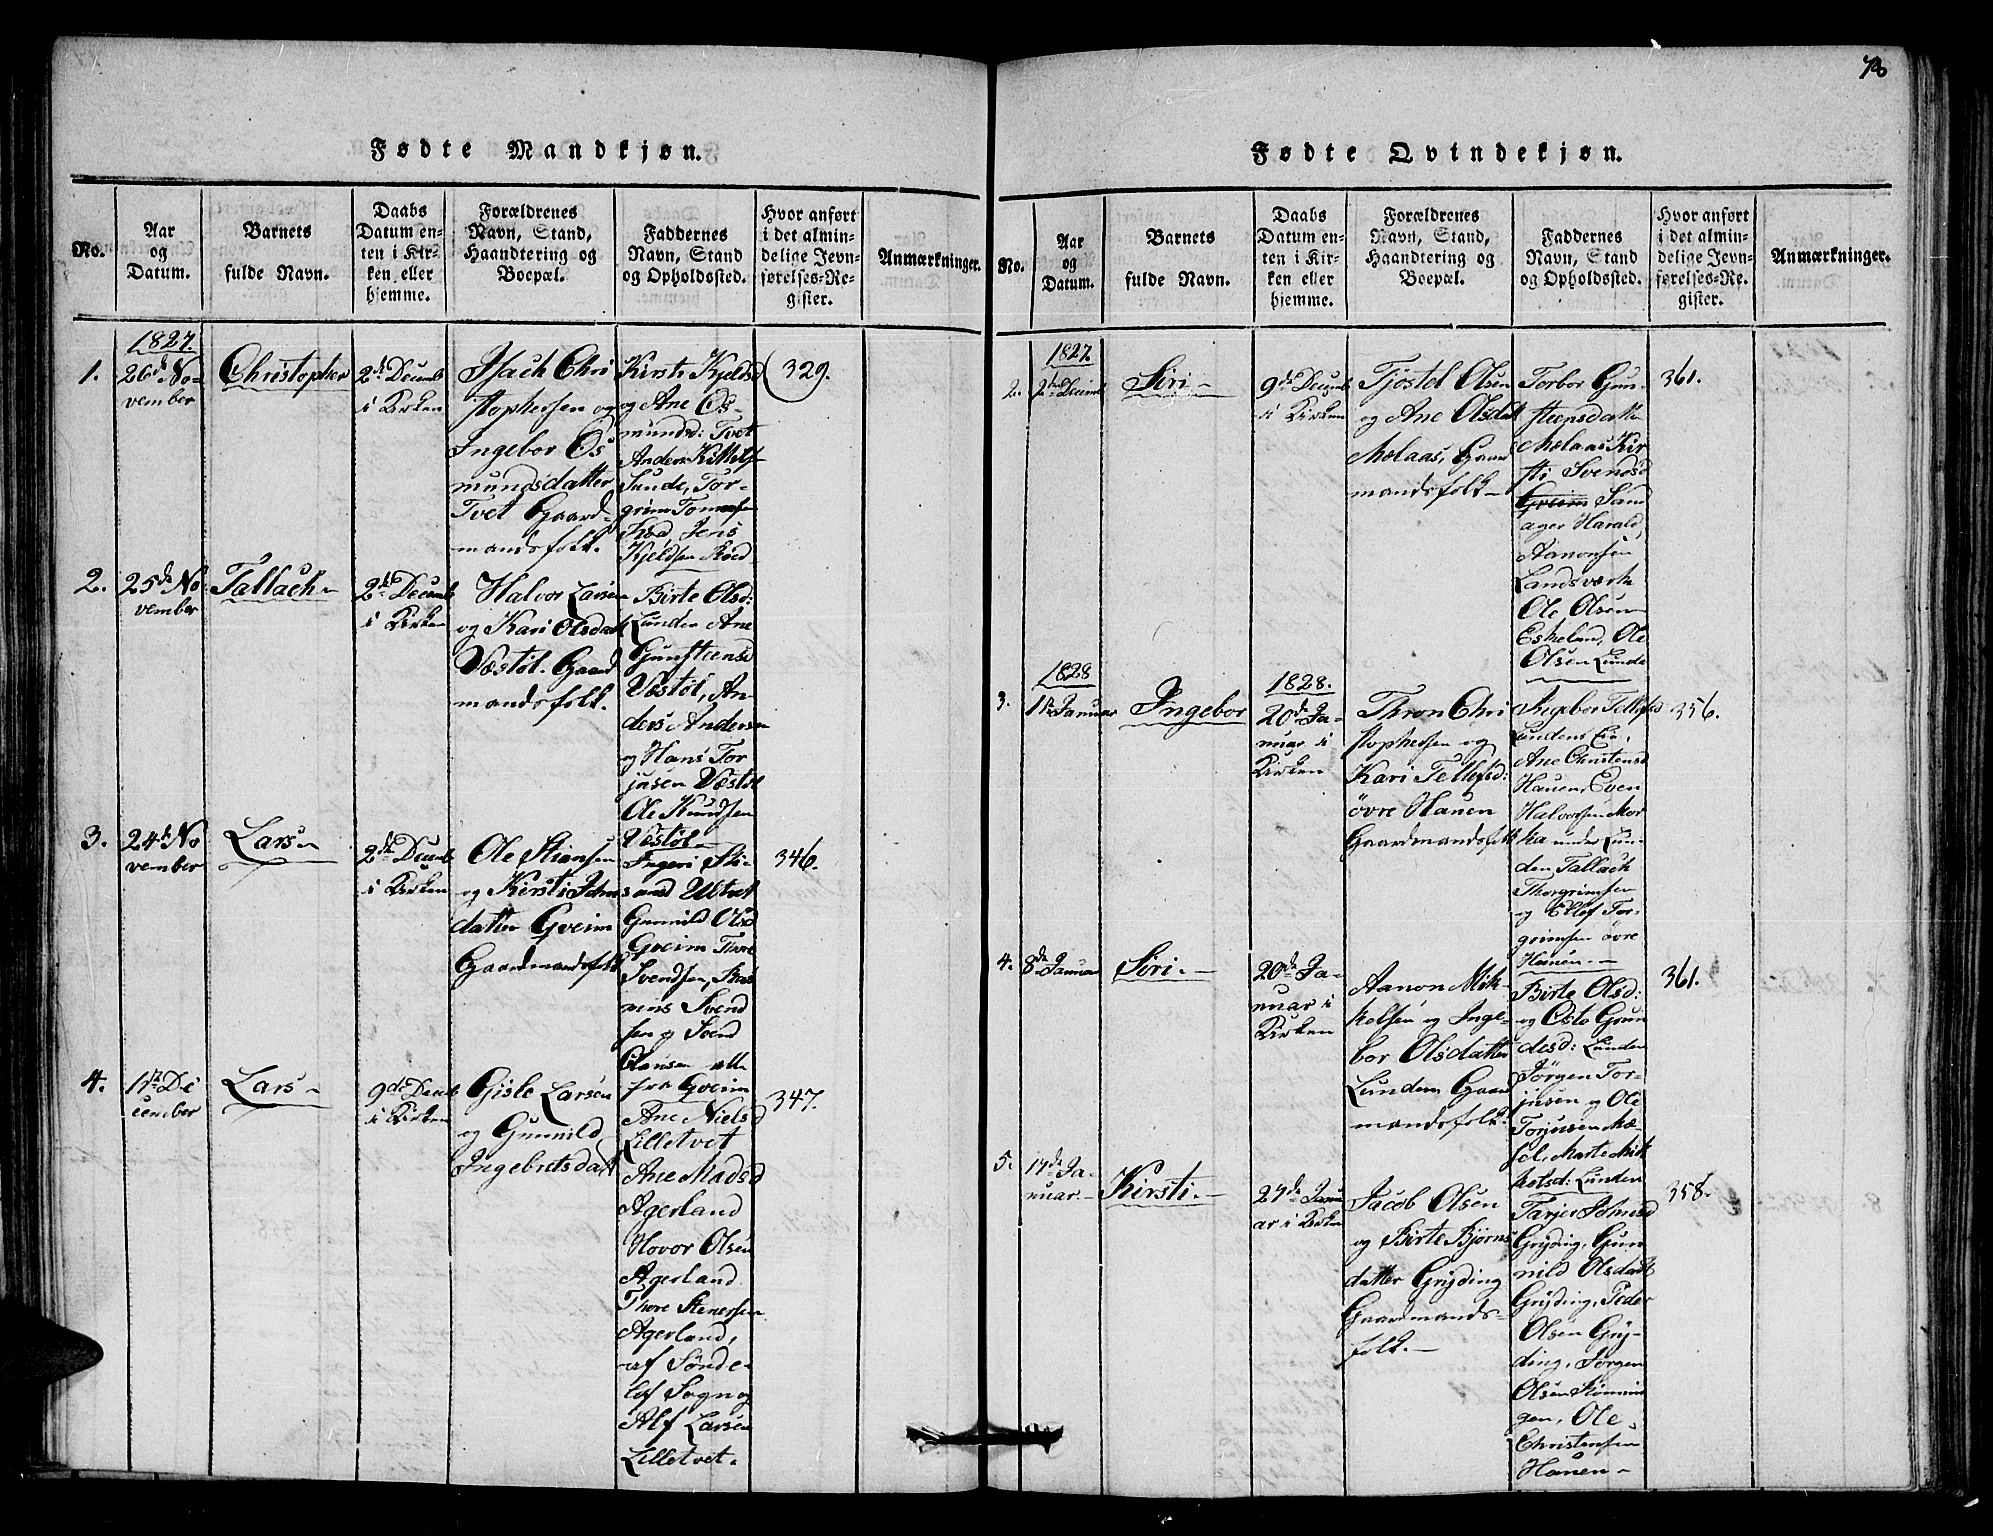 78
Fødte Mandkjøn.
No.
Aar
og
Datum.
Barnets
fulde Navn.
Daabs
Datum en-
ten i Kir-
ken eller
hjemme.
Forældrenes
Navn, Stand,
Haandtering og
Boepæl.
Faddernes
Navn, Stand
og Opholdssted.
Hvor anført
i det almin-
delige Jevn-
førelses-Re-
gister.
Anmærkninger.
1.
1827.
26de No-
vember
Christopher
2de Decemb
i Kirken
Isach Chri
stophersen og
Ingebor Os
mundsdatter
Tvet Gaard-
mandsfolk.
Kirsti Kjeldsd
og Ane Os-
mundsd: Tvet
Anders Kittels
Sunde, Tor-
grim Tomesen
Röd, Jens
Kjeldsen Röed
329.
2.
25de No-
vember
Tallach
2de Decemb
i Kirken
Halvor Larsen
og Kari Olsdatt
Væstöl. Gaard
mandsfolk.
Birte Olsd:
Lunden Ane
Gunsteensd
Væstöl, An-
ders Andersen
og Hans Tor
jusen Væstöl
Ole Knudsen
Væstöl
3.
24de No
vember
Lars
2de Decemb
i Kirken
Ole Stiansen
og Kirsti John
datter Gveim
Gaardmandsfolk
Ingeri Sti-
Ultvet
Gunnild Olsd
Gveim Thore
Svendsen,
Svend
sen og Svend
Olansen alle
fra Gveim
346.
4.
1te De
cember
Lars
9de Decemb
i Kirken
Gisle Larsen
og Gunnild
Ingebretsdatt
Ane Nielsd
Lilletvet
Ane Madsd
Agerland
Hovor Olsen
Agerland
Thore Stenersen
Agerland,
af Sönde-
löf Sogn og
Alf Larsen
Lilletvet
347.
Fødte Qvindekjøn.
No.
Aar
og
Datum.
Barnets
fulde Navn.
Daabs
Datum en-
ten i Kir-
ken eller
hjemme.
Forældrenes
Navn, Stand,
Haandtering og
Boepæl.
Faddernes
Navn, Stand
og Opholdssted.
Hvor anført
i det almin-
delige Jevn-
førelses-Re-
gister.
Anmærkninger.
2.
1827
2de Decemb
Siri
9de Decemb
i Kirken
Tjöstel Olsen
og Ane Olsdatt
Mölaas, Gaard
mandsfolk
Torbor Gun-
steensdatter
Mælaas Kir
sti Svendsd
Gveim Sand
ager Harald
Aanonsen
Landsværk
Ole Olsen
Eskeland, Ole
Olsen Lunde
361.
3.
1828
11te Januar
Ingebor
1828.
20de Ja-
nuar i
Kirken
Thron Chri
stophersen og
Kari Tellefsd:
övre Hauen
Gaardmandsfolk
Ingebor Tellefsd
Lundens Eie,
Ane Christensd
Hauen, Even
Halvorsen Mor
ka under Lun-
den Tallach
Thorgrimsen
og Ellef Tor-
grimsen övre
Hauen
356.
4.
8de Januar
Siri.
20de Ja-
nuar i
Kirken
Aanon Mik-
kelsen og Inge-
bor Olsdatter
Lunden Gaard
mandsfolk.
Birte Olsd:
og Osto Gun
desd: Lunden
Jörgen Tor-
jusen og Ole
Torjusen Mæ-
sel, Marte Mik
kelsd: Lunden
361.
5.
17de Ja-
nuar
Kirsti.
27de Janu
ar i Kirken
Jacob Olsen
og Birte Björns
datter Gryding
Gaardmands-
folk.
Tarjer Johnsd
Gryding, Gun
nild Olsdatt
Gryding, Peder
Olsen Gry-
ding, Jörgen
Olsen Rönnin
gen, Ole
Christensen
Hauen
358.